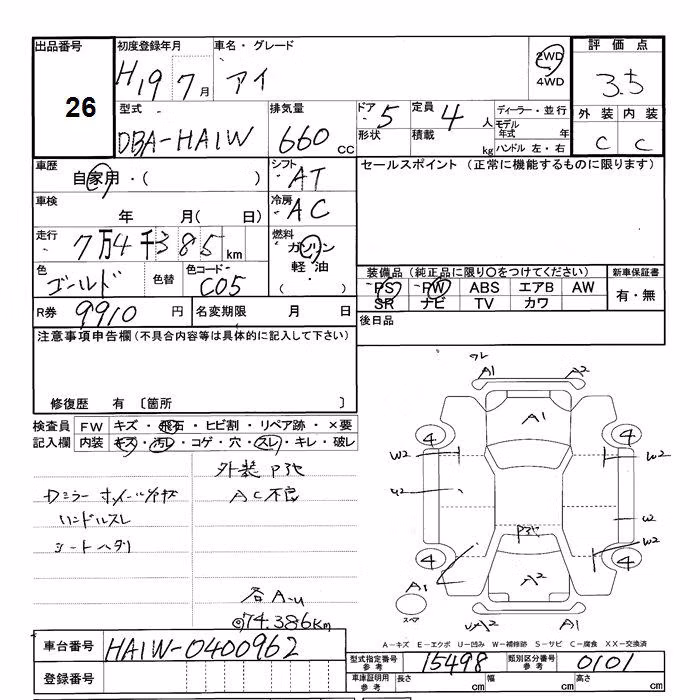 出品番号
26
初度登録年月
H19 7月
車名・グレード
アイ
2WD
4WD
評価点
3.5
外装 内装
C C
型式
DBA-HA1W
排気量
660 CC
ドア 5
形状
定員 4 人
積載 kg
ディーラー・並行
モデル
年式 年
ハンドル 左・右
車歴
自家用・( )
シフト
AT
セールスポイント (正常に機能するものに限ります)
車検
年 月( 日)
冷房
AC
走行
7万4千385 km
燃料
ガソリン
軽油
( ・ )
色
ゴールド
色替
色コード
C05
装備品 (純正品に限り○をつけてください)
PS PW ABS エアB AW
SR ナビ TV カワ
新車保証書
有・無
R券 9910 円
名変期限 月 日
後日品
注意事項申告欄(不具合内容等は具体的に記入して下さい)
修復歴 有 〔箇所 〕
検査員
記入欄
FW キズ・飛石・ヒビ割・リペア跡・×要
内装 キズ・汚レ・コゲ・穴・スレ・キレ・破レ
外装 Pヌケ
AC不良
ハンドルスレ
74.386Km
A1 A2
A1
4 4
W2 W2
W2
W2
4 4
A2
A1
スペア
A1
A-キズ E-エクボ U-凹み W-補修跡 S-サビ C-腐食 XX-交換済
車台番号 HA1W-0400962
登録番号
型式指定番号
参考
15498
類別区分番号
参考
0101
車庫証明用
参考
長さ 幅 高さ
cm cm cm